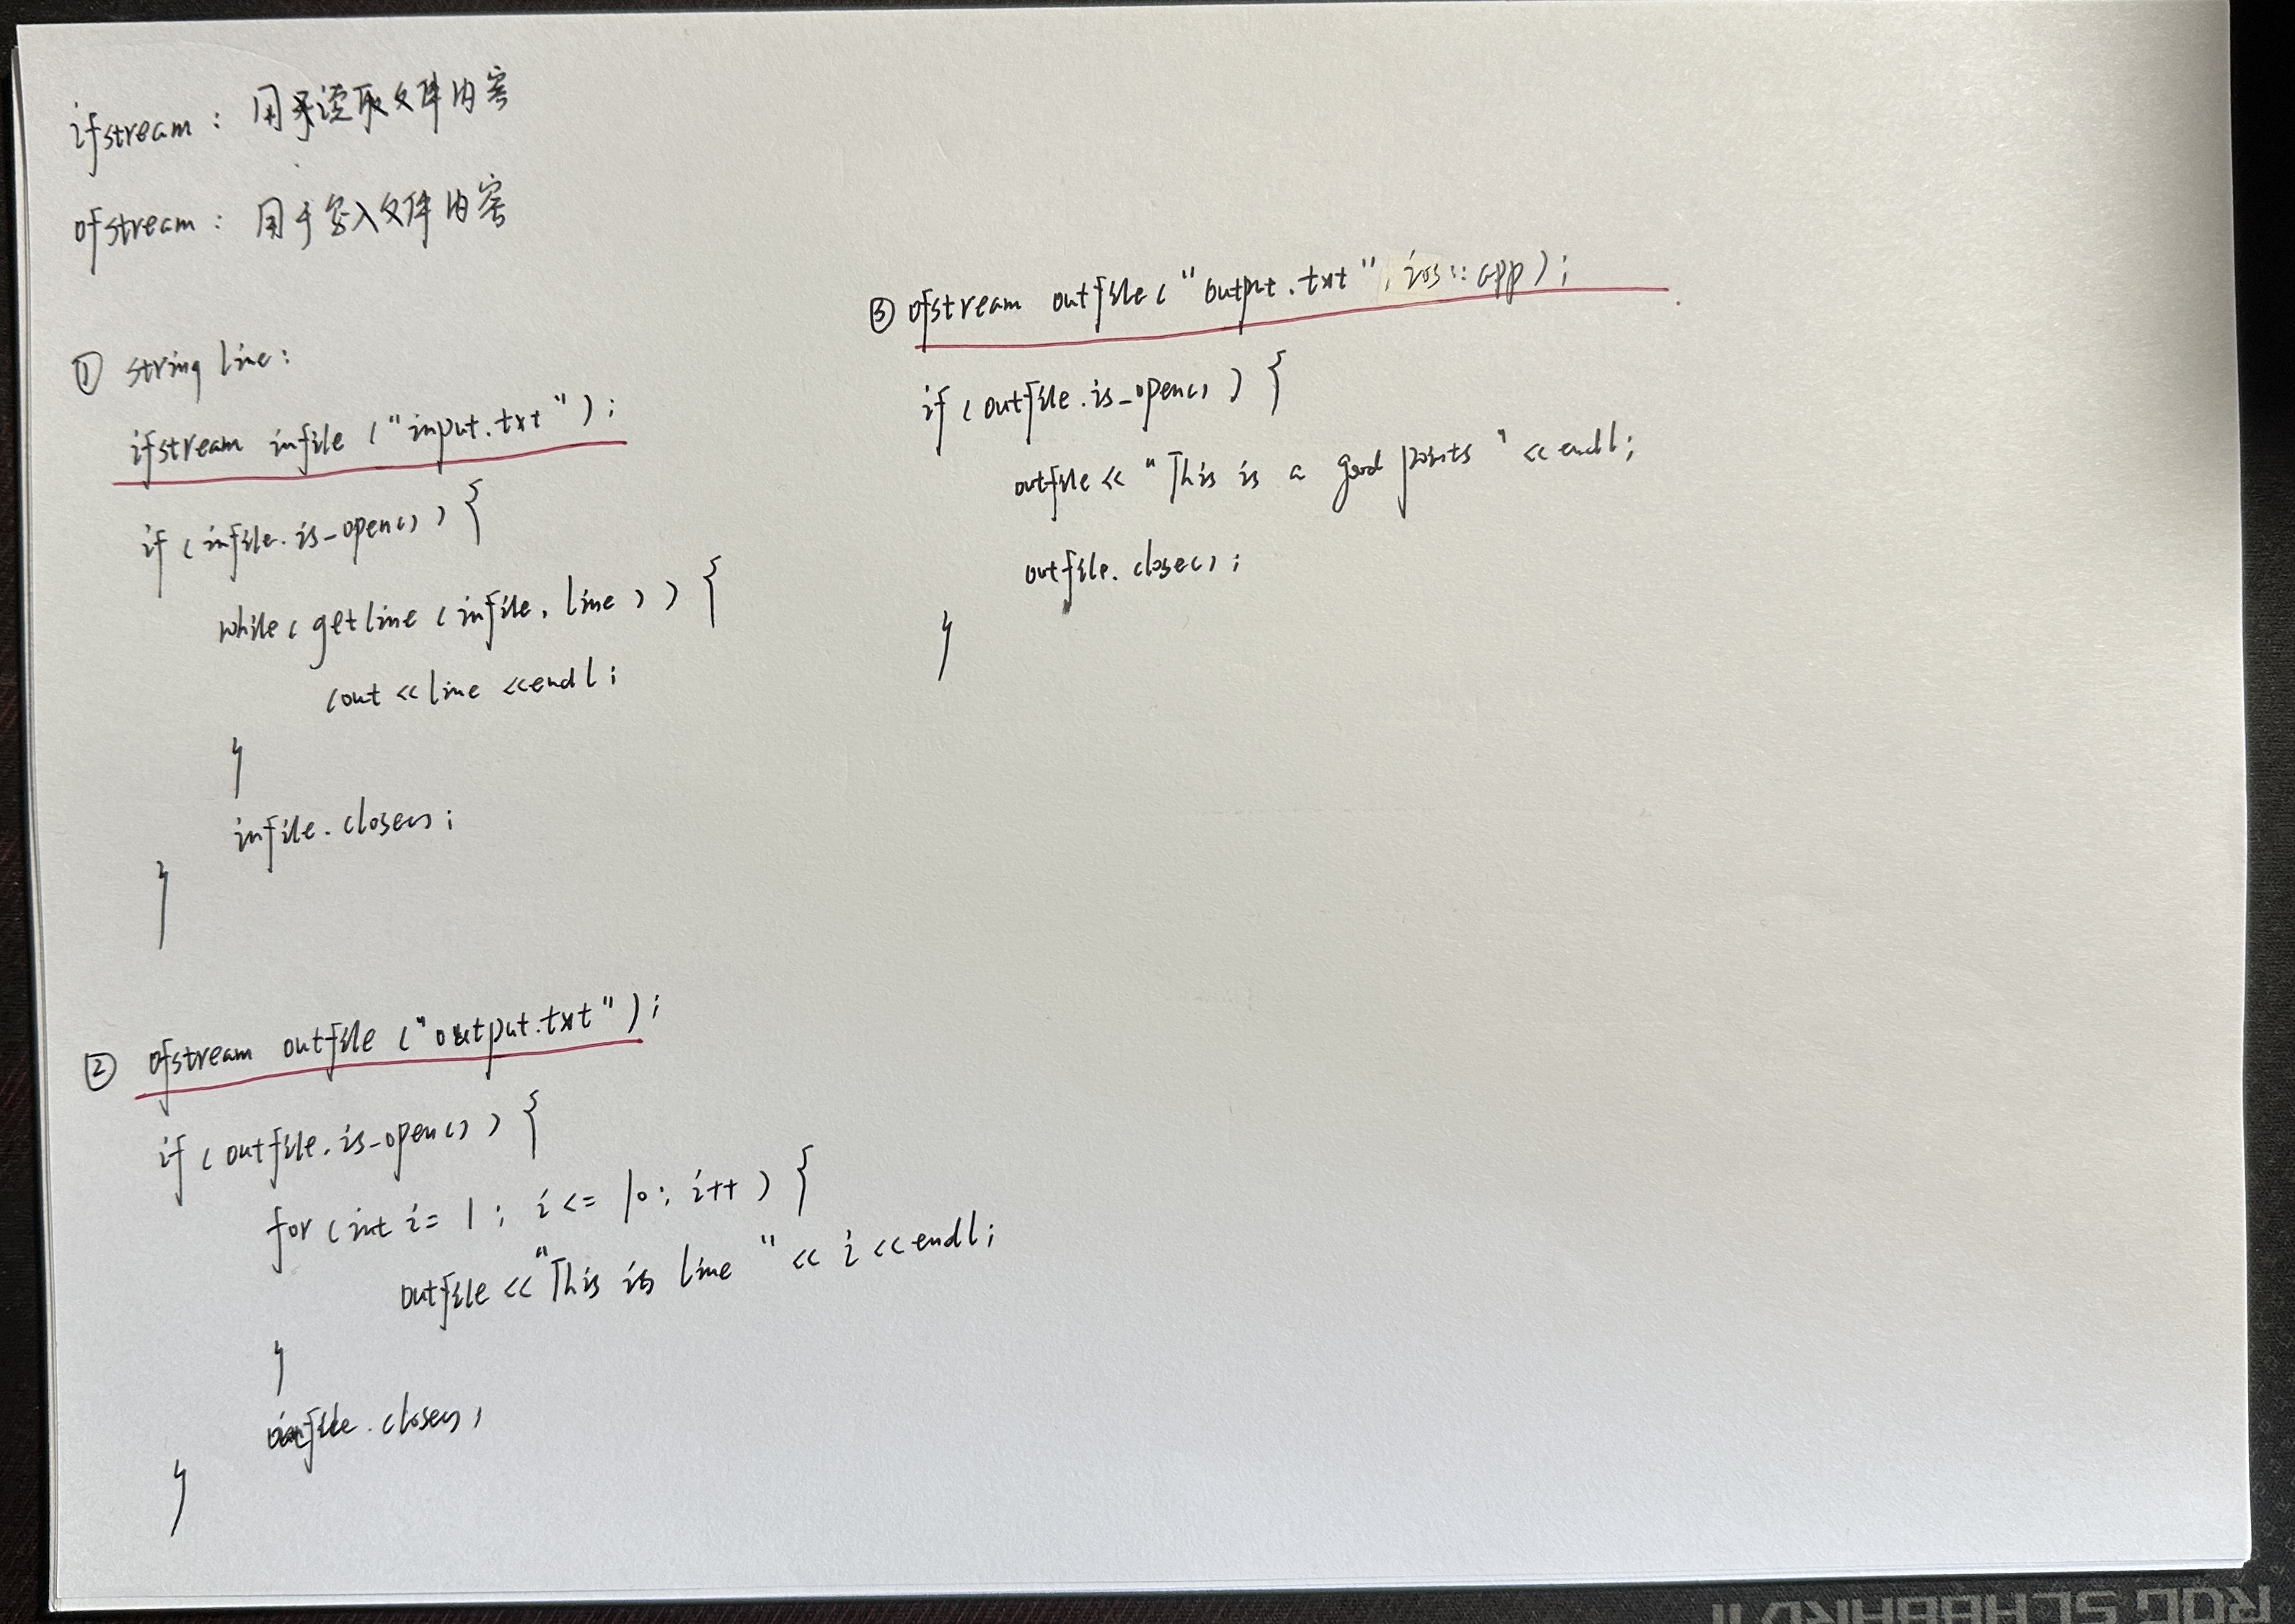 ifstream : 用来读取文件内容
ofstream : 用于写入文件内容
① string line:
ifstream infile ("input.txt");
if (infile.is_open()) {
while(getline(infile, line)) {
cout <<line <<endl;
}
infile.close();
}
② ofstream outfile ("output.txt");
if (outfile.is_open()) {
for (int i= 1; i <= 10; i++) {
outfile <<"This is line " << i <<endl;
}
file.close();
}
③ ofstream outfile("output.txt", ios::app);
if (outfile.is_open()) {
outfile << "This is a good points" <<endl;
outfile.close();
}